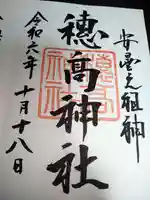 安曇之祖神
穂高神社
穂高神社
令和六年
十月十八日